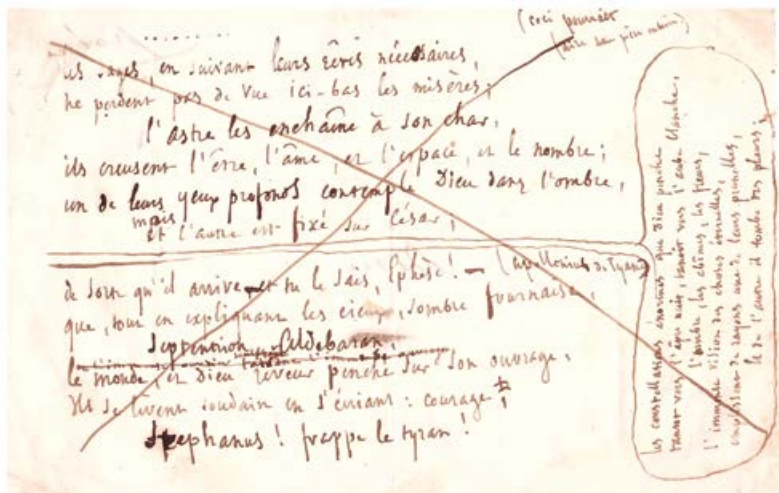 (ceci pourrait
. . . . . . . .
les sages, en suivant leurs rêves nécessaires,
ne perdent pas de vue ici-bas les misères;
l'astre les enchaîne à son char,
ils creusent l'être, l'âme, et l'espace, et le nombre;
un de leurs yeux profonds contemple Dieu dans l'ombre,
mais
et l'autre est fixé sur César;
de sorte qu'il arrive, et tu le sais, Ephèse! — (apollonius de Tyane)
que, tout en expliquant les cieux, sombre fournaise,
Septentrion, Aldébaran,
le monde, et Dieu rêveur penché sur son ouvrage,
Ils se lèvent soudain en s'écriant : courage,
Stephanus! frappe le tyran!
les constellations énormes que Dieu penche
tantôt vers l'âpre nuit, tantôt vers l'aube blanche,
l'ombre, les abîmes, les fleurs,
l'immense vision des choses éternelles,
emplissent de rayons une de leurs prunelles,
et de l'autre il tombe des pleurs;